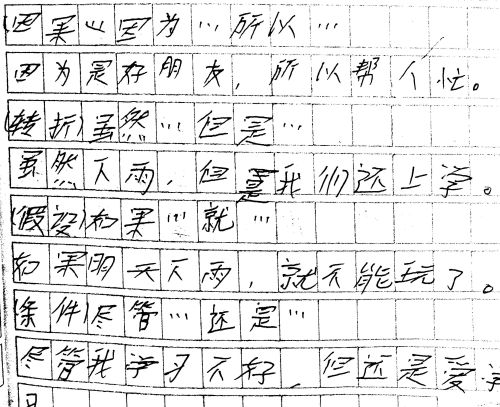 (因果)因为…所以…
因为是好朋友,所以帮个忙。
(转折)虽然…但是…
虽然下雨,但是我们还上学。
(假设)如果…就…
如果明天下雨,就不能玩了。
(条件)尽管…还是…
尽管我学习不好,但还是爱学